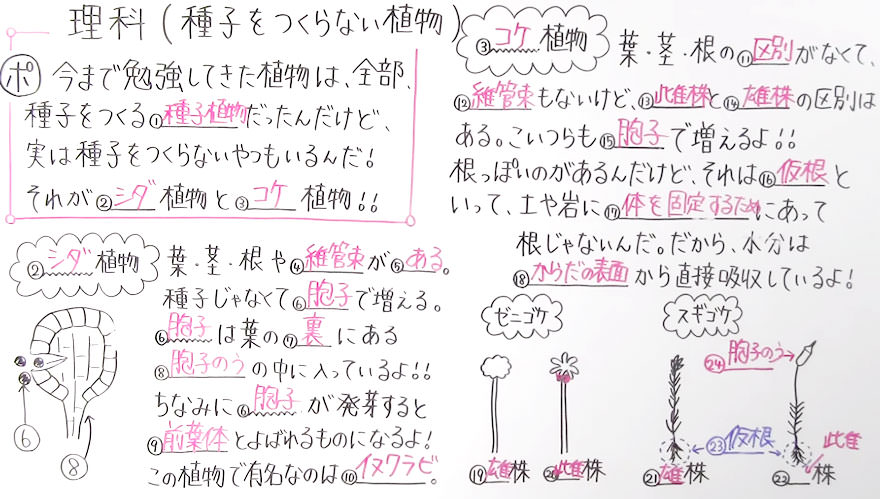 理科(種子をつくらない植物)
ポ 今まで勉強してきた植物は、全部、
種子をつくる①種子植物だったんだけど、
実は種子をつくらないやつもいるんだ!
それが②シダ植物と③コケ植物!!
②シダ植物
葉・茎・根や④維管束が⑤ある。
種子じゃなくて⑥胞子で増える。
⑥胞子は葉の⑦裏にある
⑧胞子のうの中に入っているよ!!
ちなみに⑥胞子が発芽すると
⑨前葉体とよばれるものになるよ!
この植物で有名なのは⑩イヌワラビ。
⑥
⑧
③コケ植物
葉・茎・根の⑪区別がなくて、
⑫維管束もないけど、⑬雌株と⑭雄株の区別は
ある。こいつらも⑮胞子で増えるよ!!
根っぽいのがあるんだけど、それは⑯仮根と
いって、土や岩に⑰体を固定するためにあって
根じゃないんだ。だから、水分は
⑱からだの表面から直接吸収しているよ!
ゼニゴケ
スギゴケ
㉔胞子のう
㉓仮根
⑲雄株
⑳雌株
㉑雄株
㉒株
雌